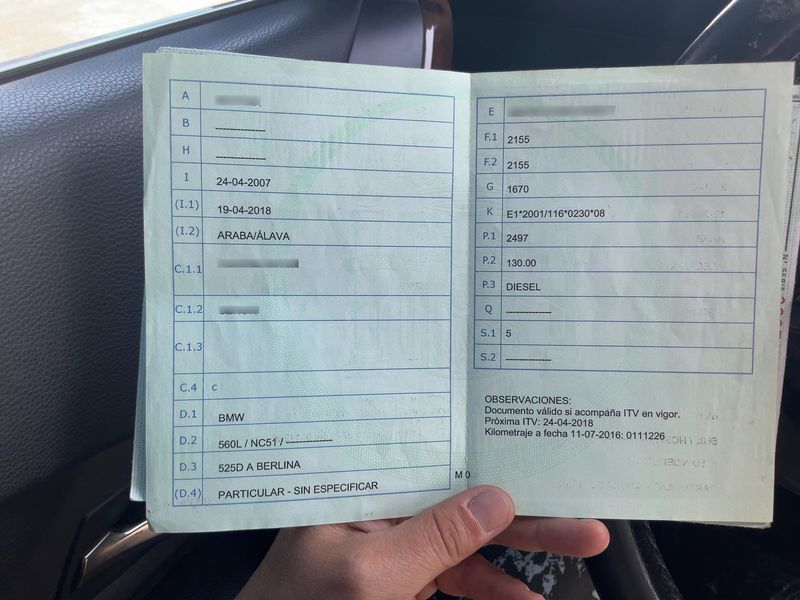 A
B --------------
H --------------
I 24-04-2007
(I.1) 19-04-2018
(I.2) ARABA/ÁLAVA
C.1.1
C.1.2
C.1.3
C.4 c
D.1 BMW
D.2 560L / NC51 / --------------
D.3 525D A BERLINA
(D.4) PARTICULAR - SIN ESPECIFICAR
M 0
E
F.1 2155
F.2 2155
G 1670
K E1*2001/116*0230*08
P.1 2497
P.2 130.00
P.3 DIESEL
Q --------------
S.1 5
S.2 --------------
OBSERVACIONES:
Documento válido si acompaña ITV en vigor.
Próxima ITV: 24-04-2018
Kilometraje a fecha 11-07-2016: 0111226